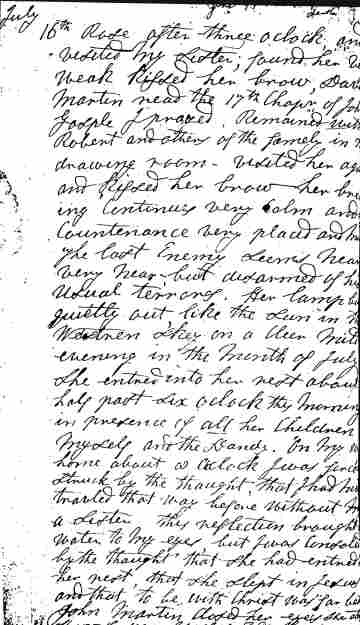 July
16th Rose after three oclock and
visited my Sister, found her
weak Kissed her brow, David
Martin read the 17th Chapr of John
Gosple I prayed. Remained with
Robert and others of the famely in
drawing room - visited her aga
and Kissed her brow her brea
ing Continues very Calm and
Countenance very placed and
The last Enemy Seems near
very near - but disarmed of his
usual terrors. Her lamp
quietly out like the Sun in
Western Sky on a Clear
evening in the Month of July
She entred into her rest about
half past Six oClock this Morning
in presence of all her Children
Myself and the Dandy. On my
home about 8 oClock I was
Struck by the thought, that I had
traviled that way before without
a Sister this reflection brought
water to my eyes but I was Consoled
by the thought that she had entred
her rest, that she slept in Jesus
and that to be with Christ was far
John Martin Closed her eyes she